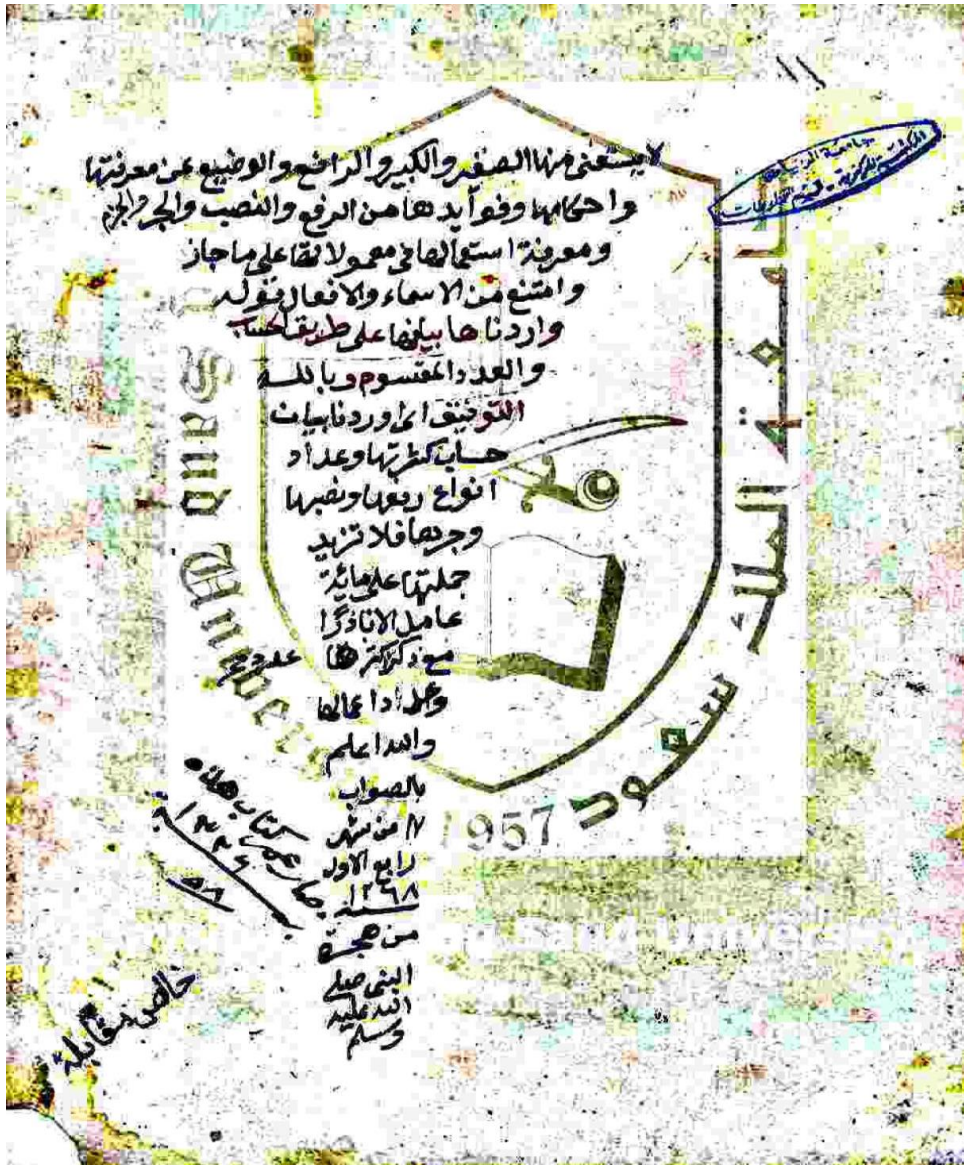 لا يستغنى منها الصغير والكبير والرافع والوضيع عن معرفتها
واحكامها وفوايدها من الرفع والنصب والجر والجزم
ومعرفة استعمالها فى معمولاتها على ماجاز
وامتنع من الاسماء والافعال فنوله
واردناها بيانها على طريق الحساب
والعدد المقسوم وبالله
التوفيق اوردنا بيان
حساب كثرتها وعداد
انواع رفعها ونصبها
وجرها فلا تزيد
جملتها على مائة
عامل الا نادرًا
مع كثرتها
وعداد اعمالها
والله اعلم
بالصواب
١٧ من شهر
رابع الاول
سنة ١٢٦٨
من هجرة
النبى صلى
الله عليه
وسلم
كتاب هذه
خالص مقابلة
جامعة الرياض
جامعة الملك سعود
1957
King Saud University